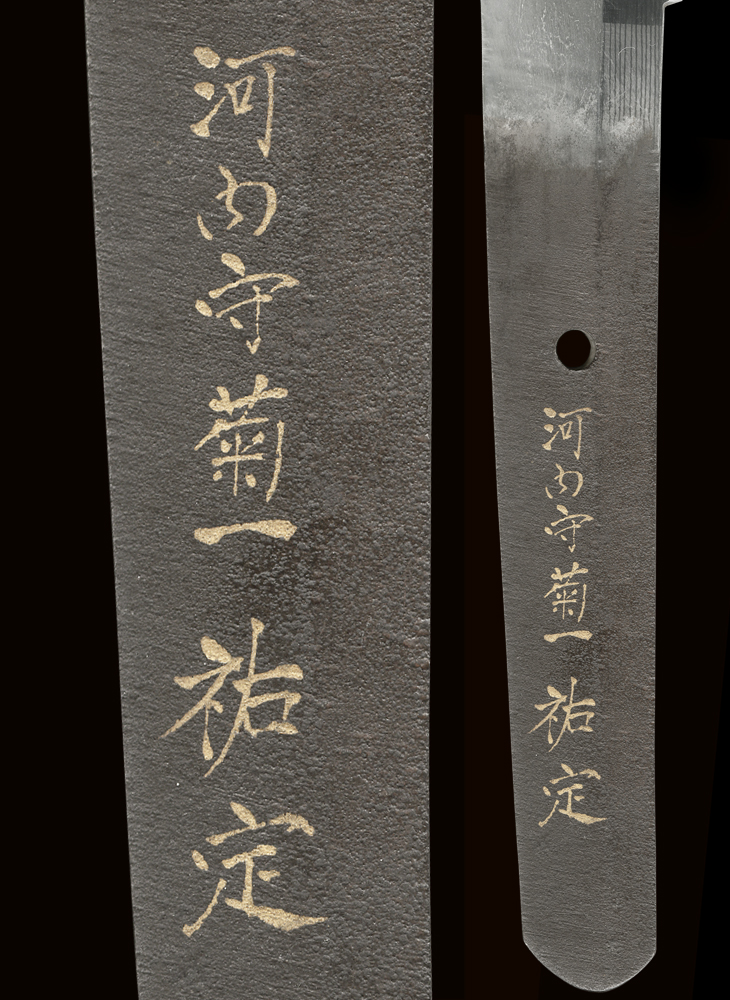 河内守菊一祐定
河内守菊一祐定